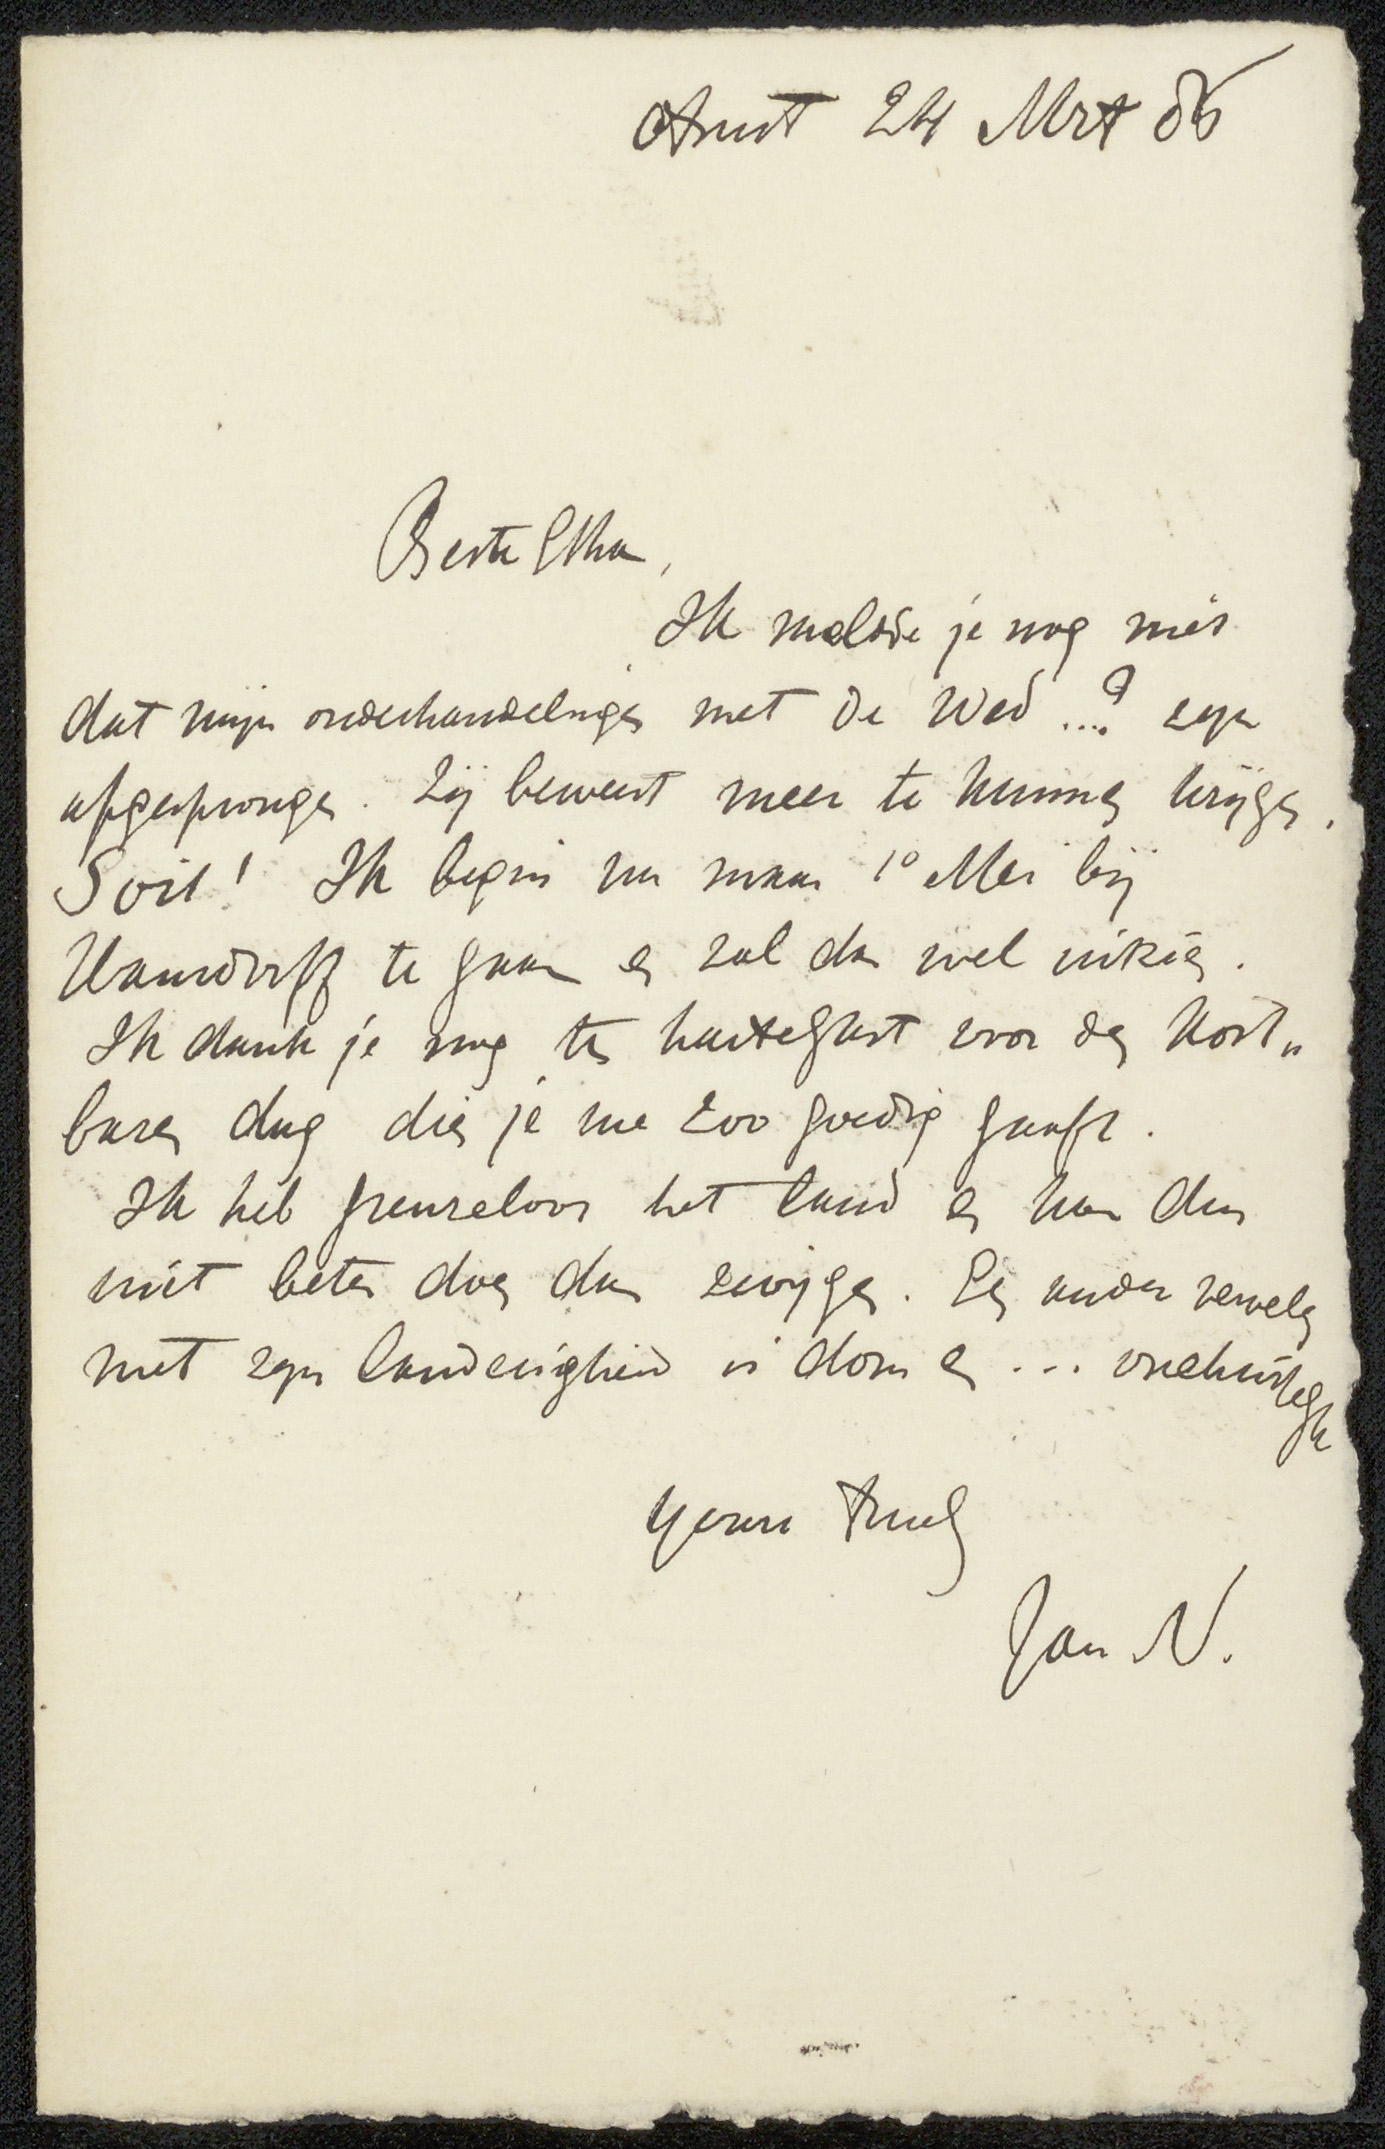 Amst 24 Mrt 86
Beste Etha,
Ik meldde je nog niet
dat mijn onderhandelingen met de Wed ...? zijn
afgesprongen. Zij beweert meer te kunnen krijgen.
Soit! Ik begin nu maar 1° Mei bij
te gaan en zal dan wel uitzien.
Ik dank je nog ten hartelijkst voor den kost„
baren dag dien je me zoo goedig gaaft.
Ik heb grenzeloos het land en kan dus
niet beter doen dan zwijgen. Een ander vervelen
met zijn landerigheid is dom en ... onchristelijk
Yours truly
Jan N.